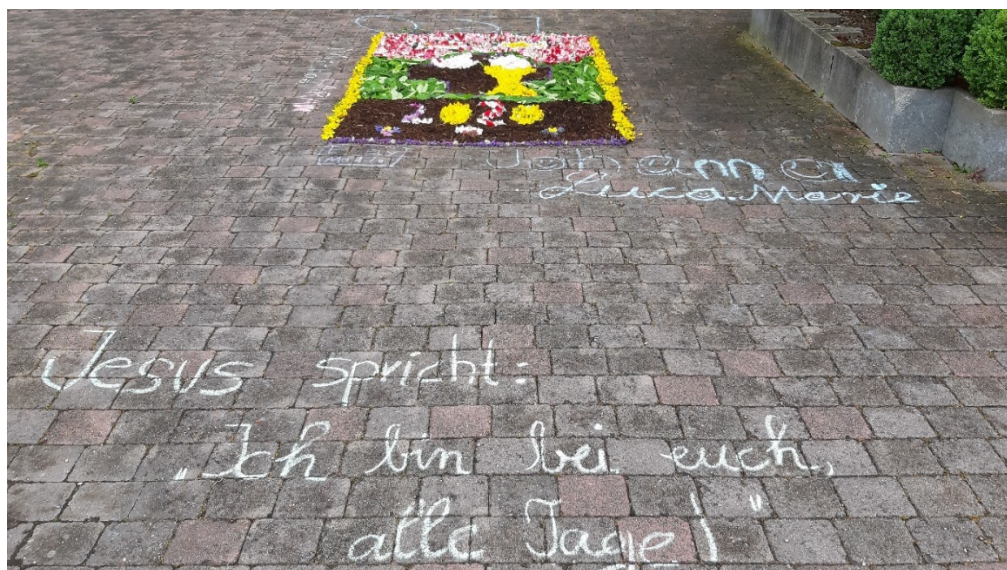 Johanna
Luca-Marie
Jesus spricht:
„Ich bin bei euch,
alle Tage!"